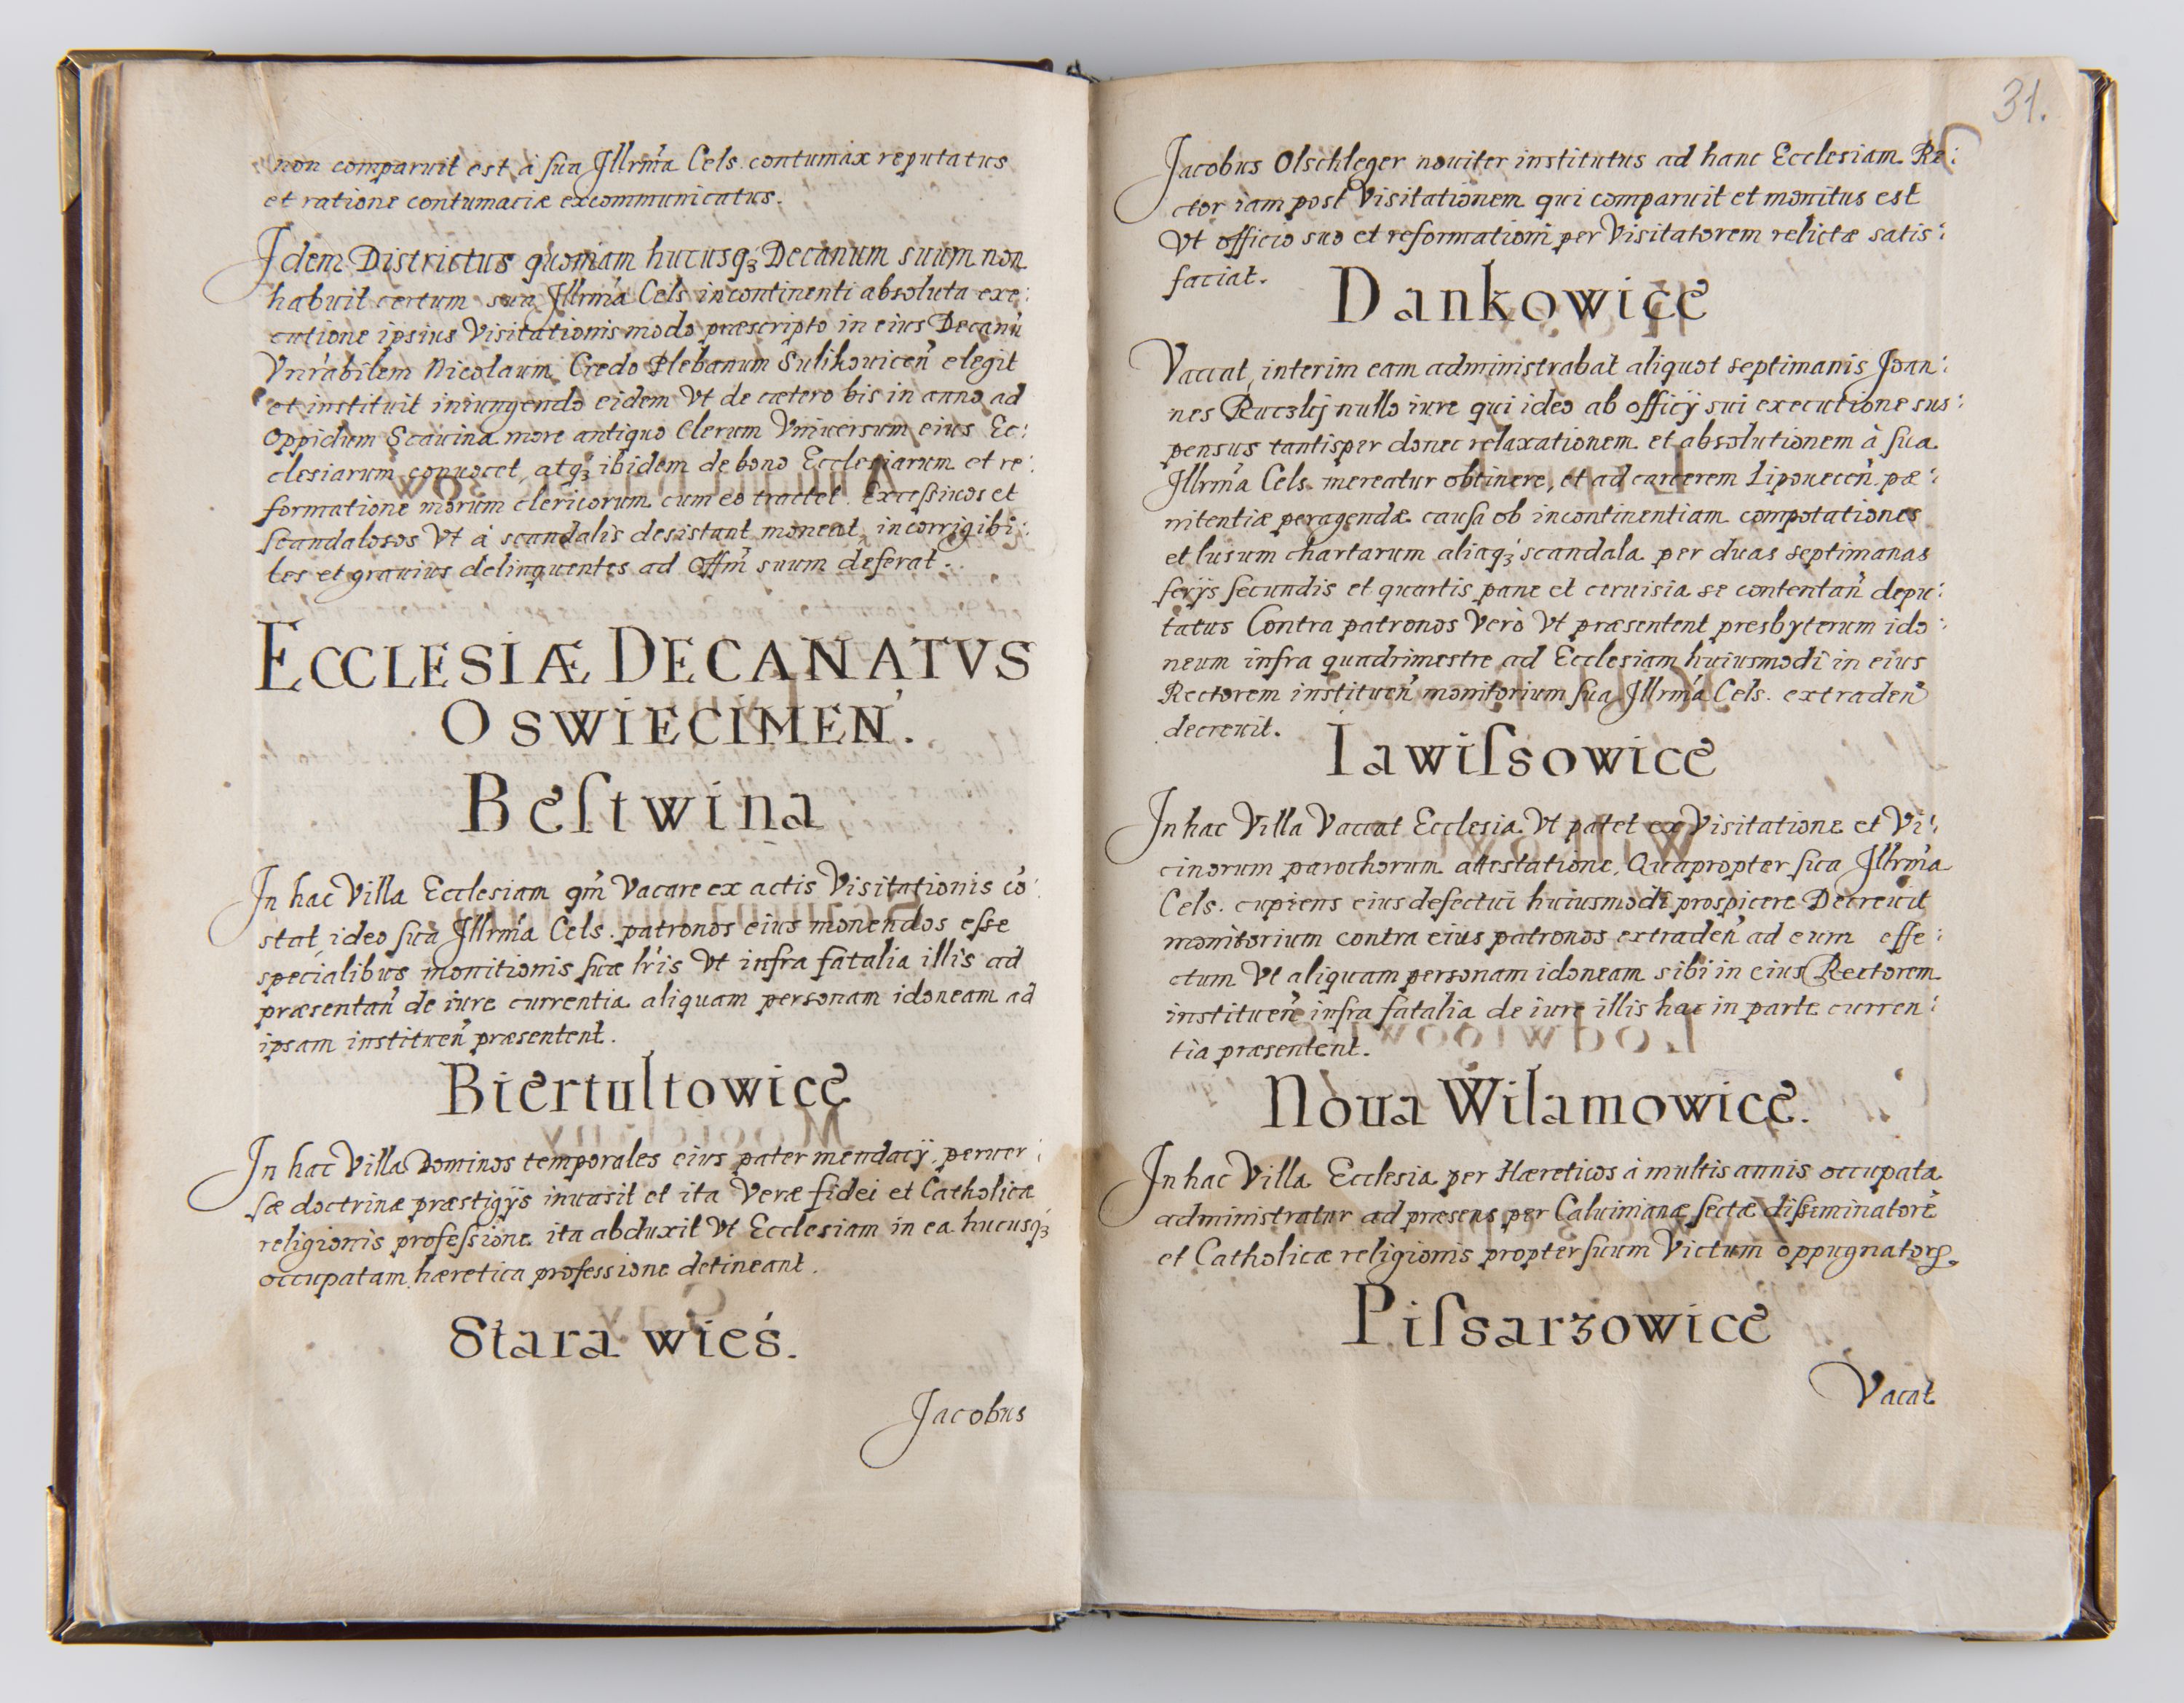 non comparuit est à sua Illrm̃a Cels. contumax reputatus
et ratione contumaciæ excommunicatus.
Idem Districtus quoniam hucusqꝫ Decanum suum non
habuit certum sua Illrm̃a Cels in continenti absoluta exe:
cutione ipsius Visitationis modo præscripto in eius Decanũ
Vnr̃abilem Nicolaum Credo Plebanum Sulikouiceñ elegit
et instituit iniungendo eidem Vt de cætero bis in anno ad
Oppidum Scawina more antiquo Clerum Vniuersum eius Ec:
clesiarum conuocet, atqꝫ ibidem de bono Ecclesiarum et re:
formatione morum clericorum cum eo tractet. Excessiuos et
scandalosos Vt à scandalis desistant moneat, incorrigibi:
les et grauius delinquentes ad Offm̃ suum deferat.
ECCLESIÆ DECANATVS
OSWIECIMEÑ.
Beſtwina
In hac Villa Ecclesiam qm̃ Vacare ex actis Visitationis cõ:
stat, ideo sua Illrm̃a Cels. patronos eius monendos esse
specialibus monitionis suæ lr̃is Vt infra fatalia illis ad
præsentañ de iure currentia aliquam personam idoneam ad
ipsam instituen̄ præsentent.
Biertultowice
In hac Villa Dominos temporales eius pater mendacij peruer:
sæ doctrinæ præstigijs inuasit et ita Veræ fidei et Catholicæ
religionis professione ita abduxit Vt Ecclesiam in ea hucusqꝫ
occupatam hæretica professione detineant.
Stara wieś.
Jacobus
31.
Jacobus Olschleger nouiter institutus ad hanc Ecclesiam Re:
ctor iam post Visitationem qui comparuit et monitus est
Vt officio suo et reformationi per Visitatorem relictæ satis:
faciat.
Dankowice
Vaccat, interim eam administrabat aliquot septimanis Joan:
nes Ruczkj nullo iure qui ideo ab officij sui executione sus:
pensus tantisper donec relaxationem et absolutionem à sua
Illrm̃a Cels. mereatur obtinere, et ad carcerem Lipoueceñ pæ:
nitentiæ peragendæ causa ob incontinentiam compotationes
et lusum chartarum aliaqꝫ scandala per duas septimanas
ferijs secundis et quartis pane et ceruisia se contentañ depu:
tatus Contra patronos Verò Vt præsentent presbyterum ido:
neum infra quadrimestre ad Ecclesiam huiusmodi in eius
Rectorem instituen̄ monitorium sua Illrm̃a Cels. extraden̄
decreuit.
Iawiſsowice
In hac Villa Vaccat Ecclesia Vt patet ex Visitatione et Vi:
cinorum parochorum attestatione, Quapropter sua Illrm̃a
Cels. cupiens eius defectui huiusmodi prospicere Decreuit
monitorium contra eius patronos extraden̄ ad eum effe:
ctum Vt aliquam personam idoneam sibi in eius Rectorem
instituen̄ infra fatalia de iure illis hac in parte curren:
tia præsentent.
Noua Wilamowice.
In hac Villa Ecclesia per Hæreticos à multis annis occupata
administratur ad præsens per Caluinianæ sectæ disseminatorẽ
et Catholicæ religionis propter suum Victum oppugnatorẽ.
Piſsarzowice
Vacat